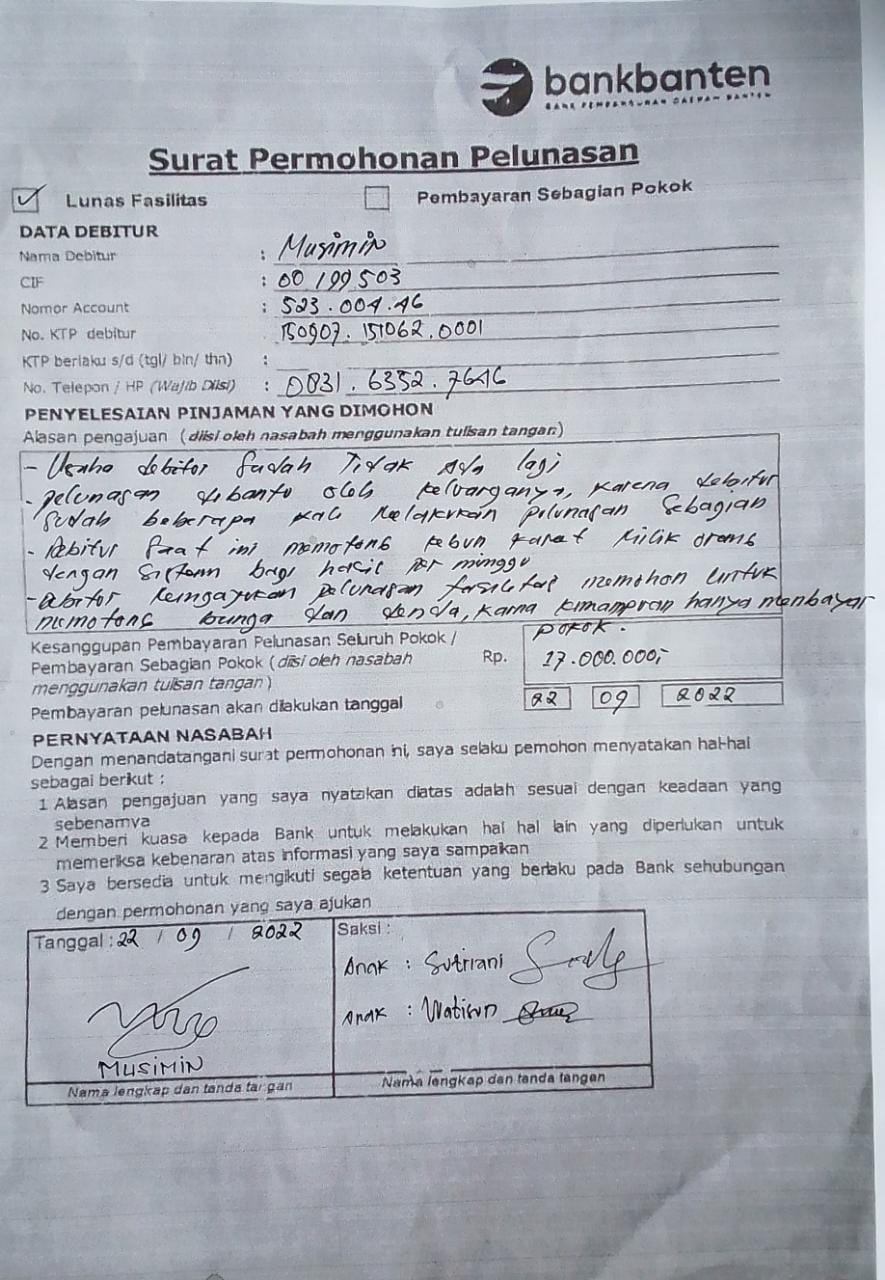 bankbanten
BANK PEMBANGUNAN DAERAH BANTEN
Surat Permohonan Pelunasan
Lunas Fasilitas Pembayaran Sebagian Pokok
DATA DEBITUR
Nama Debitur : Musimin
CIF : 00199503
Nomor Account : 523.004.46
No. KTP debitur : 150907.151062.0001
KTP berlaku s/d (tgl/ bln/ thn) :
No. Telepon / HP (Wajib Diisi) : 0831.6352.7646
PENYELESAIAN PINJAMAN YANG DIMOHON
Alasan pengajuan (diisi oleh nasabah menggunakan tulisan tangan)
- Usaha debitor Sudah Tidak Ada lagi
- pelunasan dibantu oleh keluarganya, karena debitur
Sudah beberapa kali Melakukan pelunasan Sebagian
- Debitur Saat ini memotong kebun karet Milik orang
dengan Sistem bagi hasil per minggu
- debitor Mengajukan pelunasan fasilitas memohon untuk
memotong bunga dan denda, karna kemampuan hanya menbayar
pokok.
Kesanggupan Pembayaran Pelunasan Seluruh Pokok /
Pembayaran Sebagian Pokok (diisi oleh nasabah Rp. 17.000.000,-
menggunakan tulisan tangan)
Pembayaran pelunasan akan dilakukan tanggal 22 09 2022
PERNYATAAN NASABAH
Dengan menandatangani surat permohonan ini, saya selaku pemohon menyatakan hal-hal
sebagai berikut :
1 Alasan pengajuan yang saya nyatakan diatas adalah sesuai dengan keadaan yang
sebenarnya
2 Memberi kuasa kepada Bank untuk melakukan hal hal lain yang diperlukan untuk
memeriksa kebenaran atas informasi yang saya sampaikan
3 Saya bersedia untuk mengikuti segala ketentuan yang berlaku pada Bank sehubungan
dengan permohonan yang saya ajukan
Tanggal : 22 / 09 / 2022
MUSIMIN
Nama lengkap dan tanda tangan
Saksi :
Anak : Sutriani
Anak : Watisun
Nama lengkap dan tanda tangan